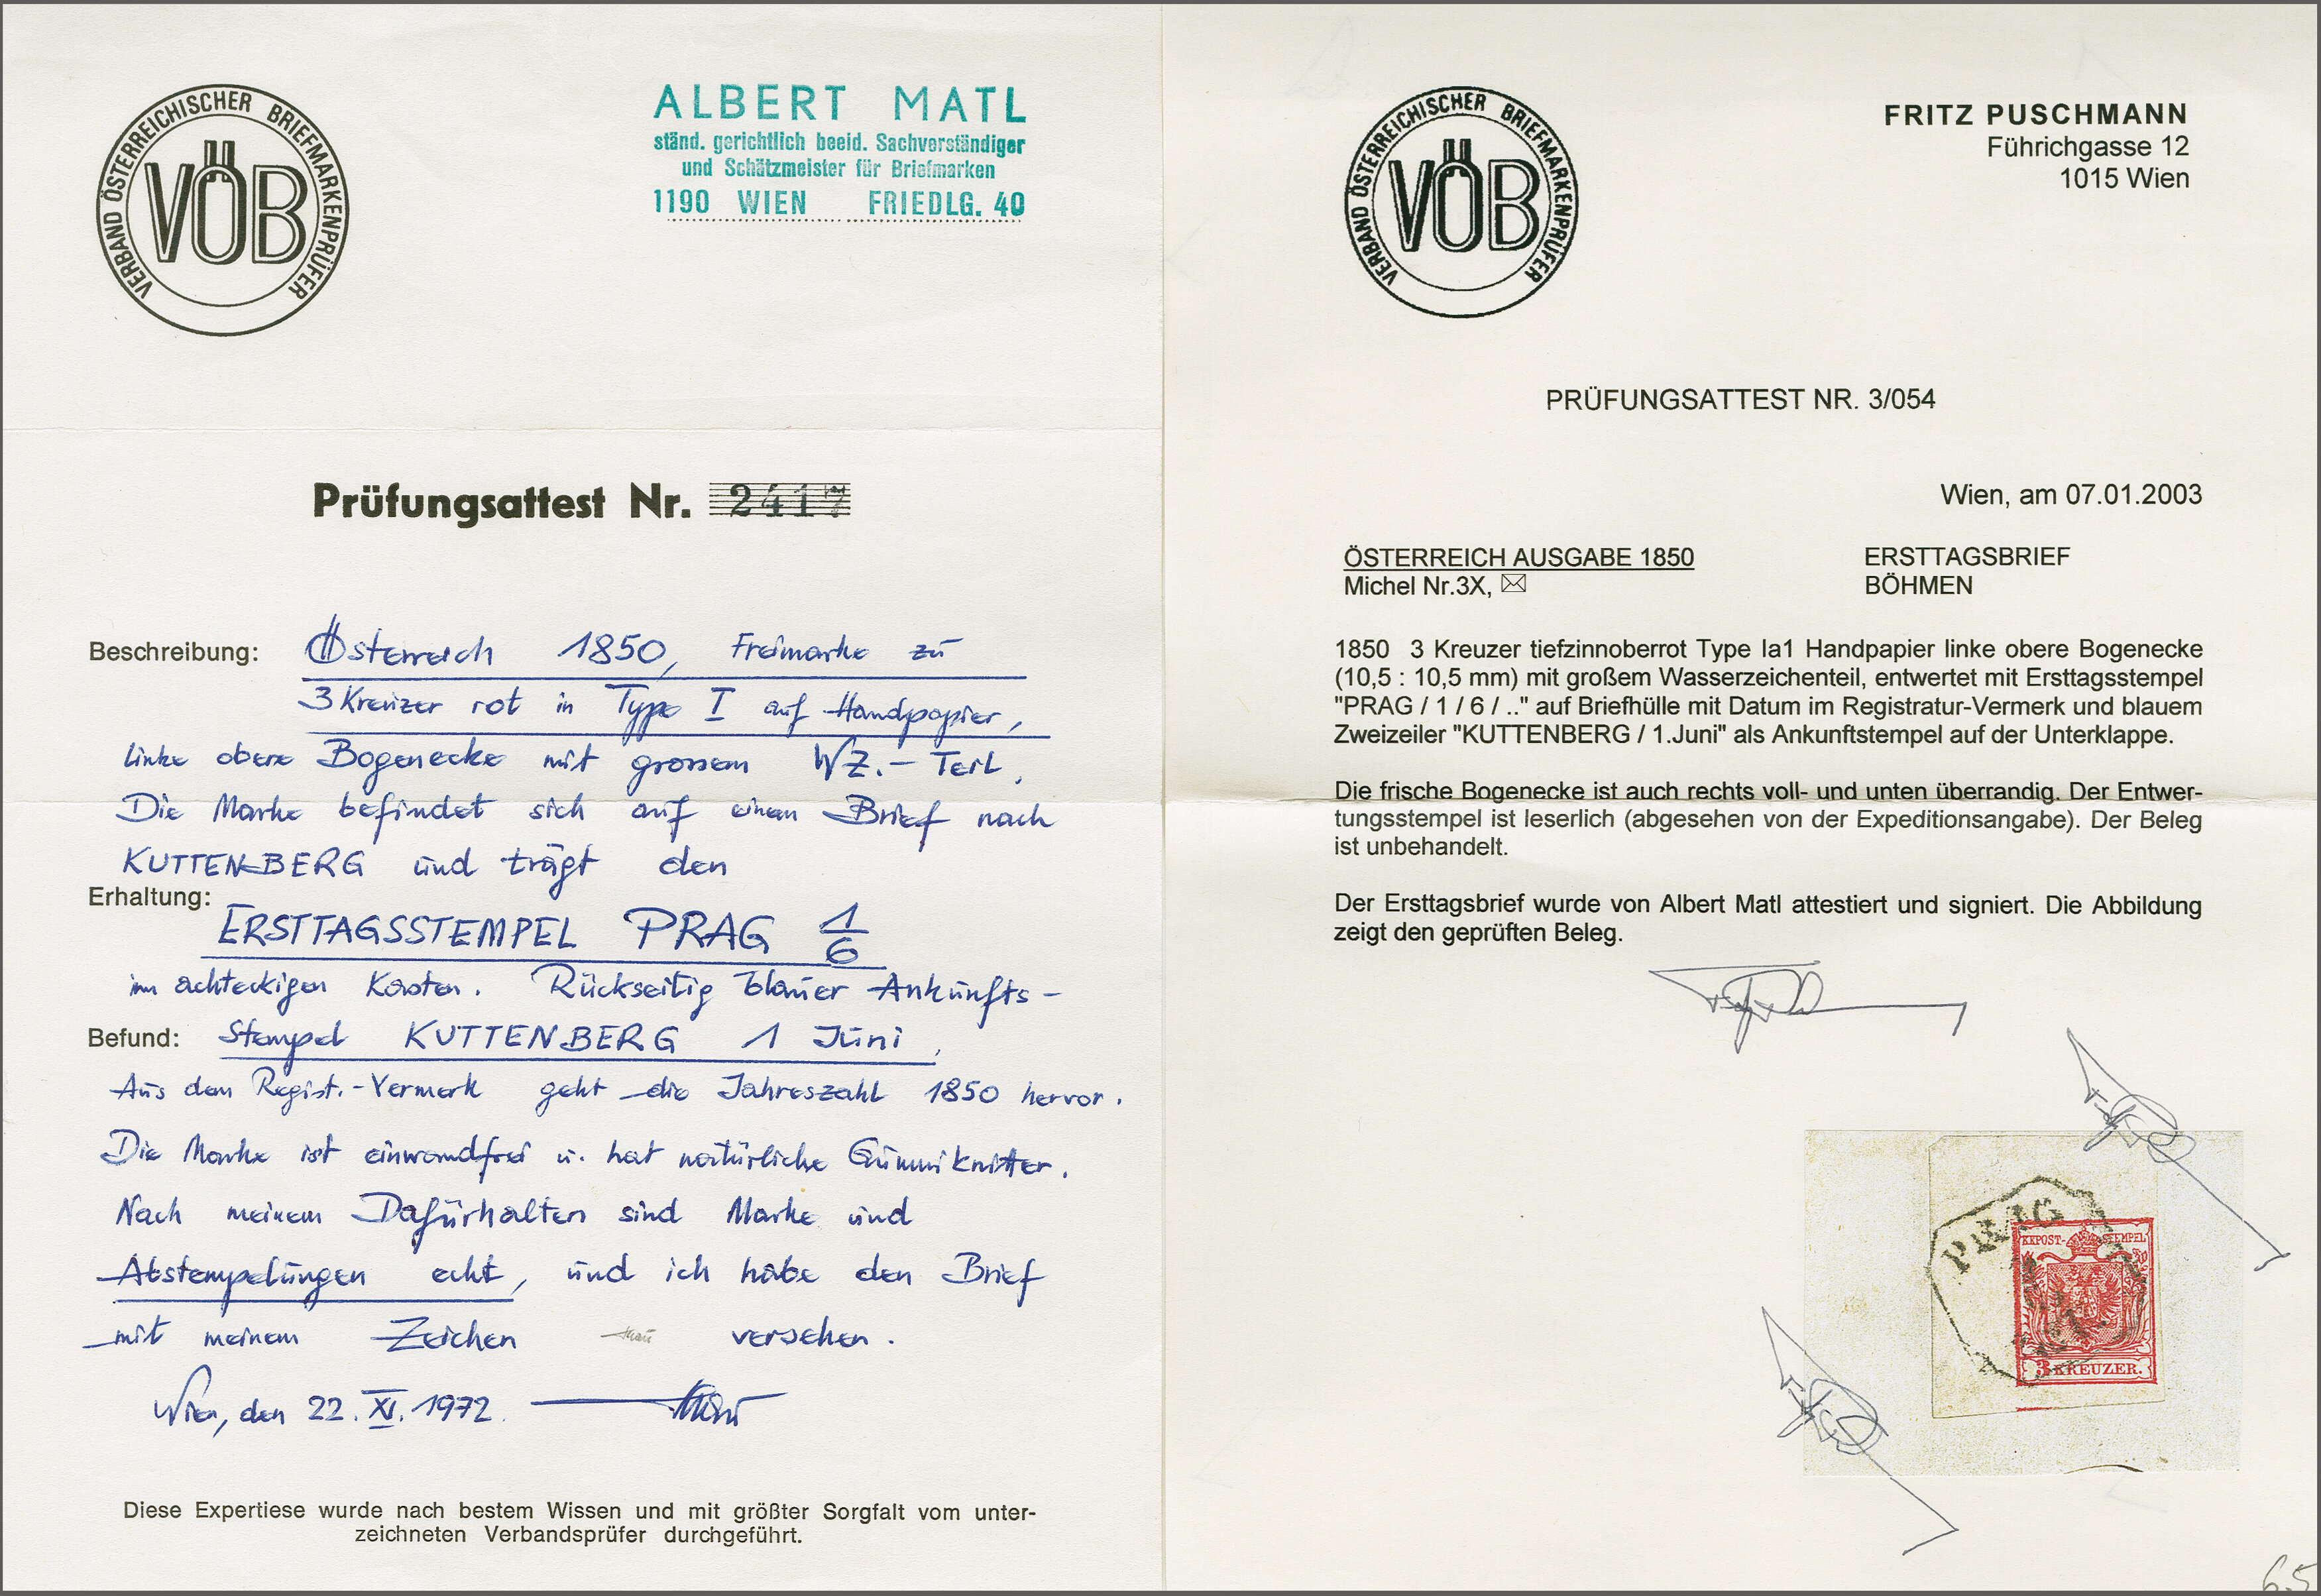 VERBAND ÖSTERREICHISCHER BRIEFMARKENPRÜFER
VÖB
ALBERT MATL
ständ. gerichtlich beeid. Sachverständiger
und Schätzmeister für Briefmarken
1190 WIEN FRIEDLG. 40
Prüfungsattest Nr. 2417
Beschreibung: Österreich 1850, Freimarke zu
3 Kreuzer rot in Type I auf Handpapier,
linke obere Bogenecke mit grossem WZ.-Teil.
Die Marke befindet sich auf einem Brief nach
KUTTENBERG und trägt den
Erhaltung:
ERSTTAGSSTEMPEL PRAG 1/6
im achteckigen Kasten. Rückseitig blauer Ankunfts-
Befund: Stempel KUTTENBERG 1 Juni,
Aus dem Regist.-Vermerk geht die Jahreszahl 1850 hervor.
Die Marke ist einwandfrei u. hat natürliche Gummiknitter.
Nach meinem Dafürhalten sind Marke und
Abstempelungen echt, und ich habe den Brief
mit meinem Zeichen versehen.
Wien, den 22. XI. 1972.
Diese Expertiese wurde nach bestem Wissen und mit größter Sorgfalt vom unter-
zeichneten Verbandsprüfer durchgeführt.
VERBAND ÖSTERREICHISCHER BRIEFMARKENPRÜFER
VÖB
FRITZ PUSCHMANN
Führichgasse 12
1015 Wien
PRÜFUNGSATTEST NR. 3/054
Wien, am 07.01.2003
ÖSTERREICH AUSGABE 1850 ERSTTAGSBRIEF
Michel Nr.3X, BÖHMEN
1850 3 Kreuzer tiefzinnoberrot Type Ia1 Handpapier linke obere Bogenecke
(10,5 : 10,5 mm) mit großem Wasserzeichenteil, entwertet mit Ersttagsstempel
"PRAG / 1 / 6 / .." auf Briefhülle mit Datum im Registratur-Vermerk und blauem
Zweizeiler "KUTTENBERG / 1.Juni" als Ankunftstempel auf der Unterklappe.
Die frische Bogenecke ist auch rechts voll- und unten überrandig. Der Entwer-
tungsstempel ist leserlich (abgesehen von der Expeditionsangabe). Der Beleg
ist unbehandelt.
Der Ersttagsbrief wurde von Albert Matl attestiert und signiert. Die Abbildung
zeigt den geprüften Beleg.
PRAG
KKPOST-STEMPEL
3 KREUZER.
6.5